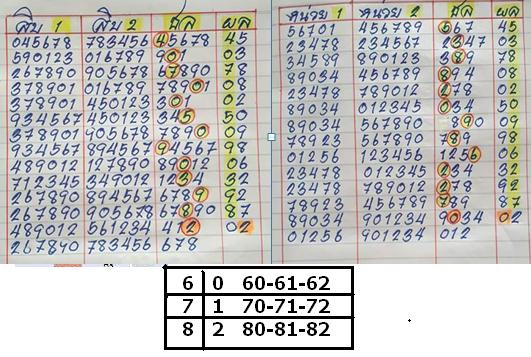 สิบ 1 สิบ 2 มีล ผล
045678 783456 45678 45
590123 016789 901 03
267890 905678 67890 78
378901 016789 78901 08
378901 450123 301 02
934567 450123 345 50
378901 905678 7890 09
934567 894567 94567 98
489012 127890 89012 06
712345 349012 1234 32
267890 894567 6789 92
267890 905678 67890 87
489012 561234 412 02
267890 783456 678
หน่วย 1 หน่วย 2 มีล ผล
56701 456789 567 45
23478 234567 2347 03
34589 890123 389 78
89034 456789 894 08
23478 789012 278 02
89034 012345 034 50
89034 567890 890 09
78923 567890 789 98
01256 123456 1256 06
23478 012345 234 32
23478 789012 278 92
78923 456789 789 87
89034 901234 9034 02
01256 901234 012
6 0 60-61-62
7 1 70-71-72
8 2 80-81-82